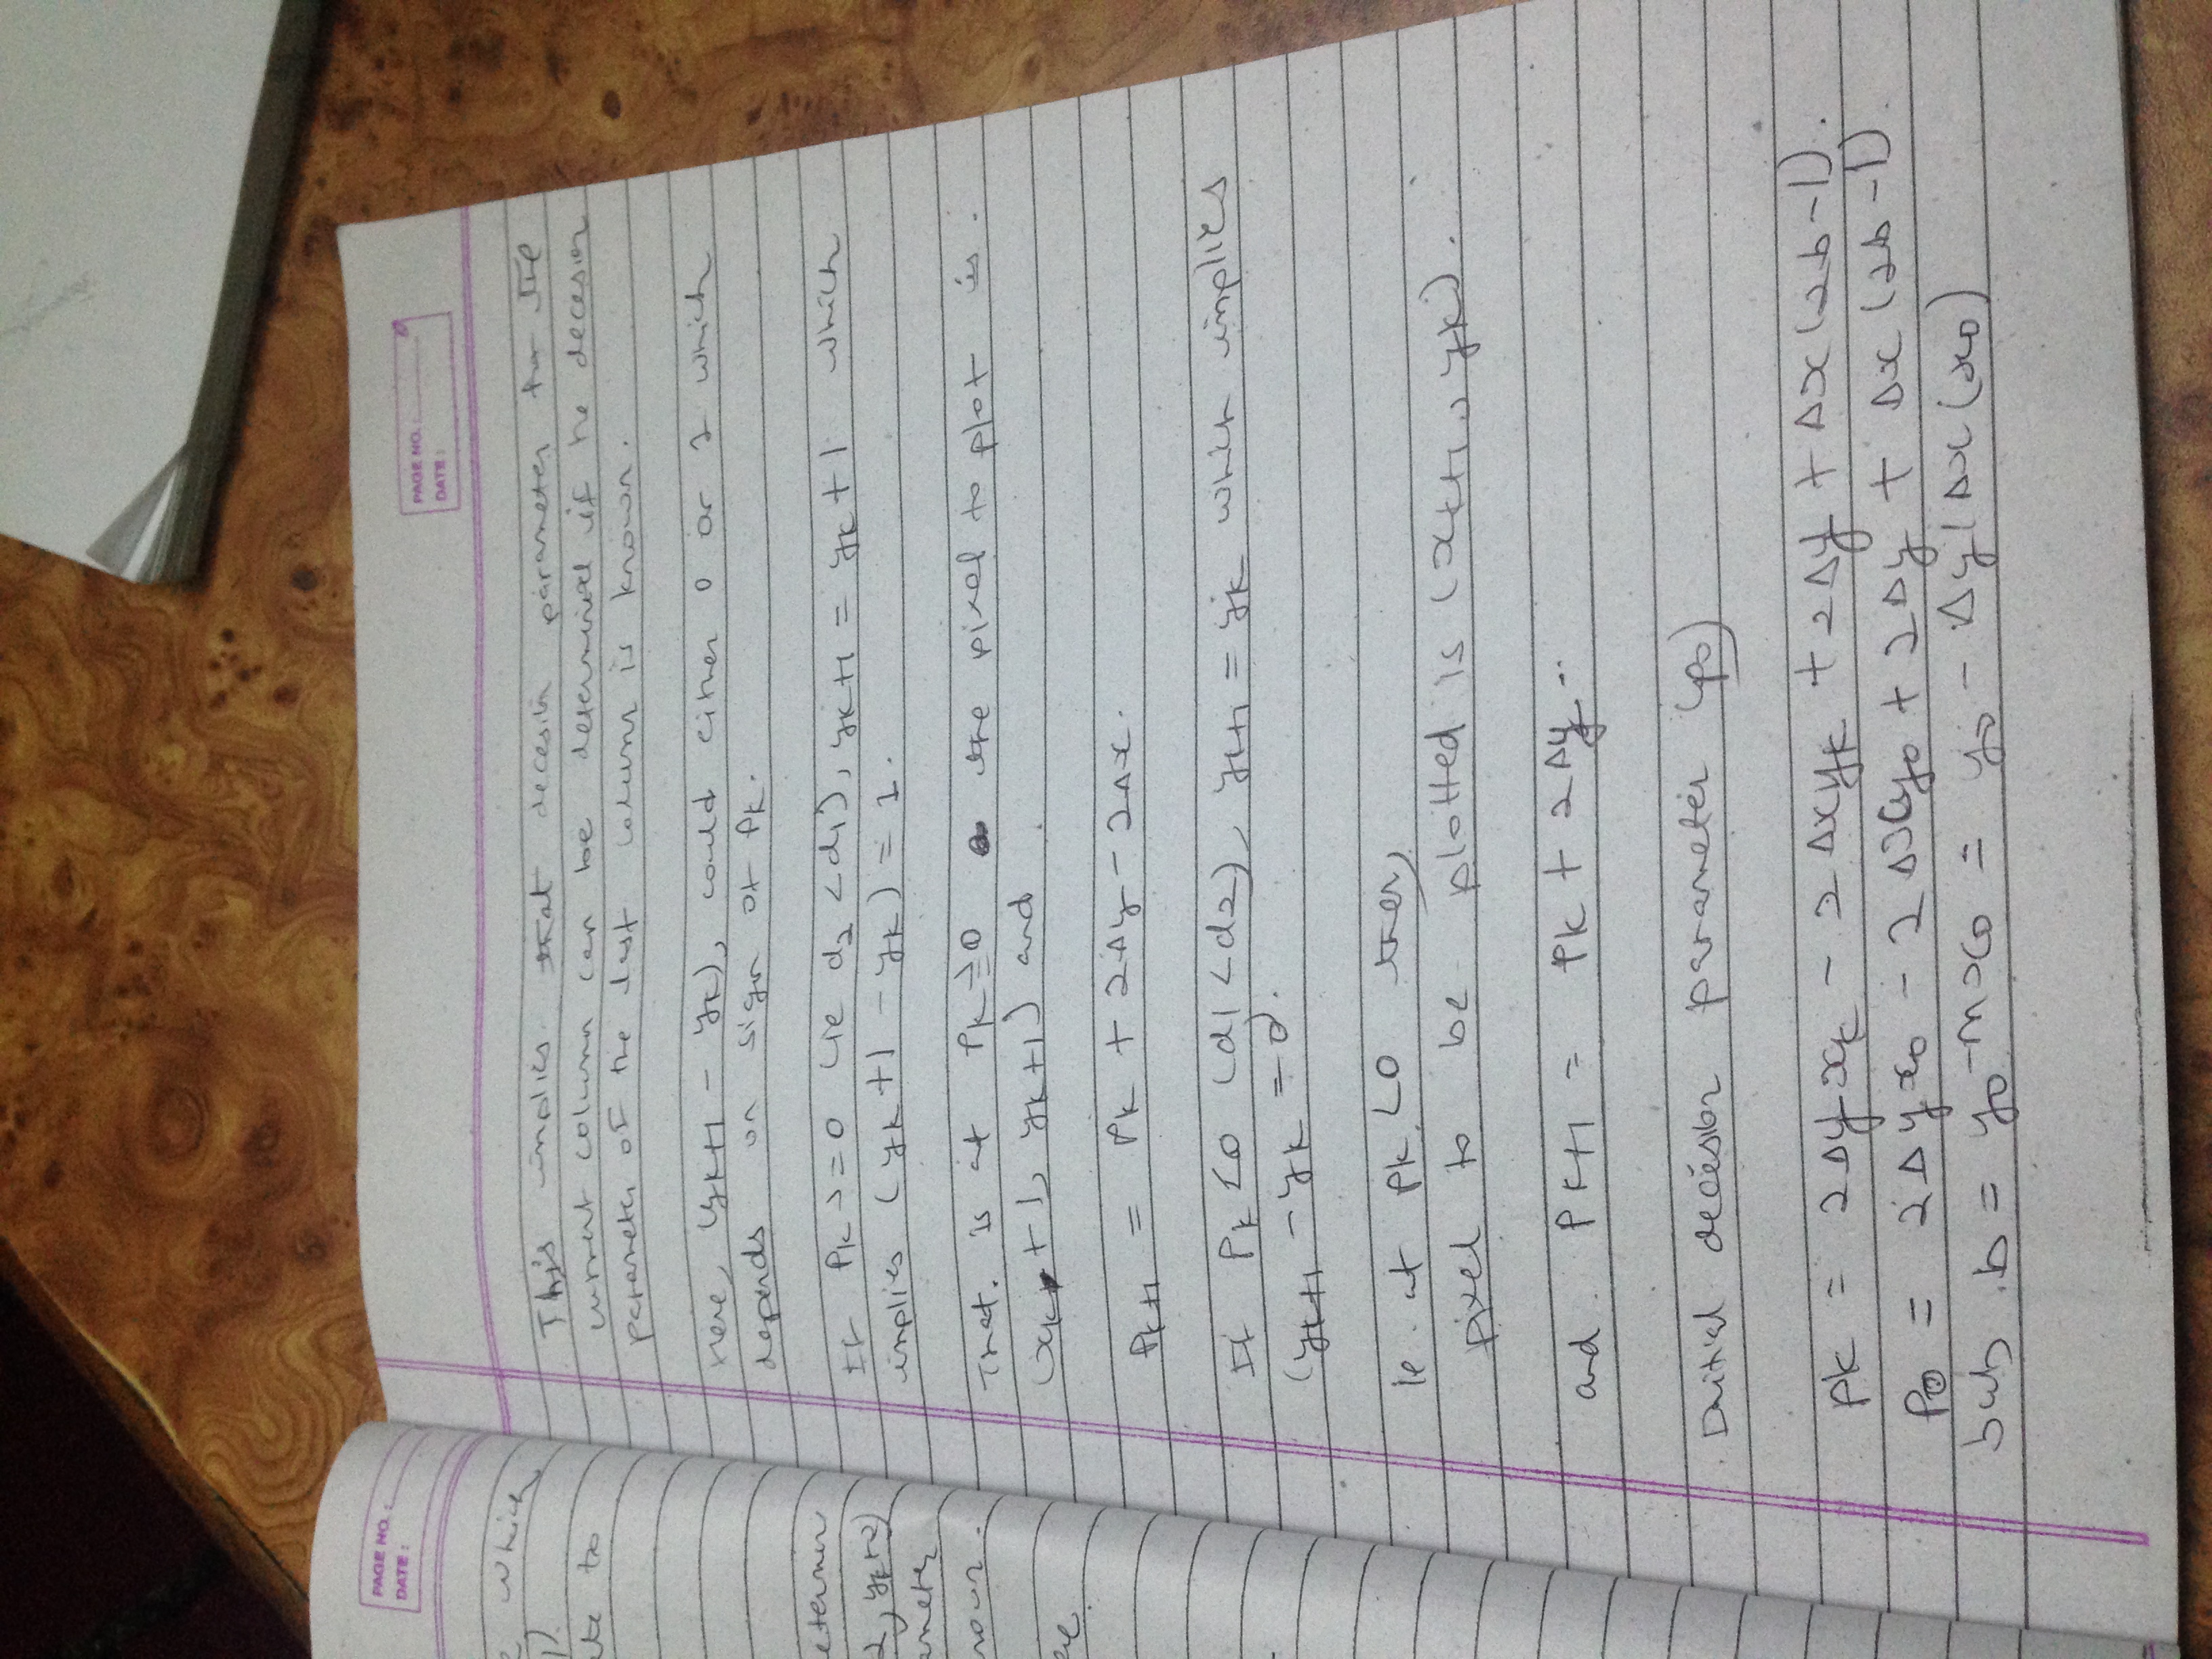 PAGE NO. :
DATE :
e which
1).
ate to
etermin
2, yk+2)
ameter
nown.
PAGE NO. :
DATE :
This implies that decesion parameter for the
current column can be determined if he decesion
parameter of the last column is known.
Here, (yk+1 - yk), could either 0 or 1 which
depends on sign of Pk.
If Pk >=0 (ie d2 <d1), yk+1 = yk + 1 which
implies (yk+1 - yk) = 1.
That. is at Pk ≥0 the pixel to plot is.
(xk + 1, yk+1) and
Pk+1 = Pk + 2Δy - 2Δx.
If Pk <0 (d1 <d2), yk+1 = yk which implies
(yk+1 - yk = 0).
ie. at pk <0 then,
pixel to be plotted is (xk+1, yk).
and Pk+1 = Pk + 2Δy
Initial decesion parameter (p0)
pk = 2Δyxk - 2Δxyk + 2Δy + Δx(2b-1).
P0 = 2Δyx0 - 2Δxy0 + 2Δy + Δx(2b-1).
sub b = y0 - mx0 = y0 - Δy/Δx(x0)